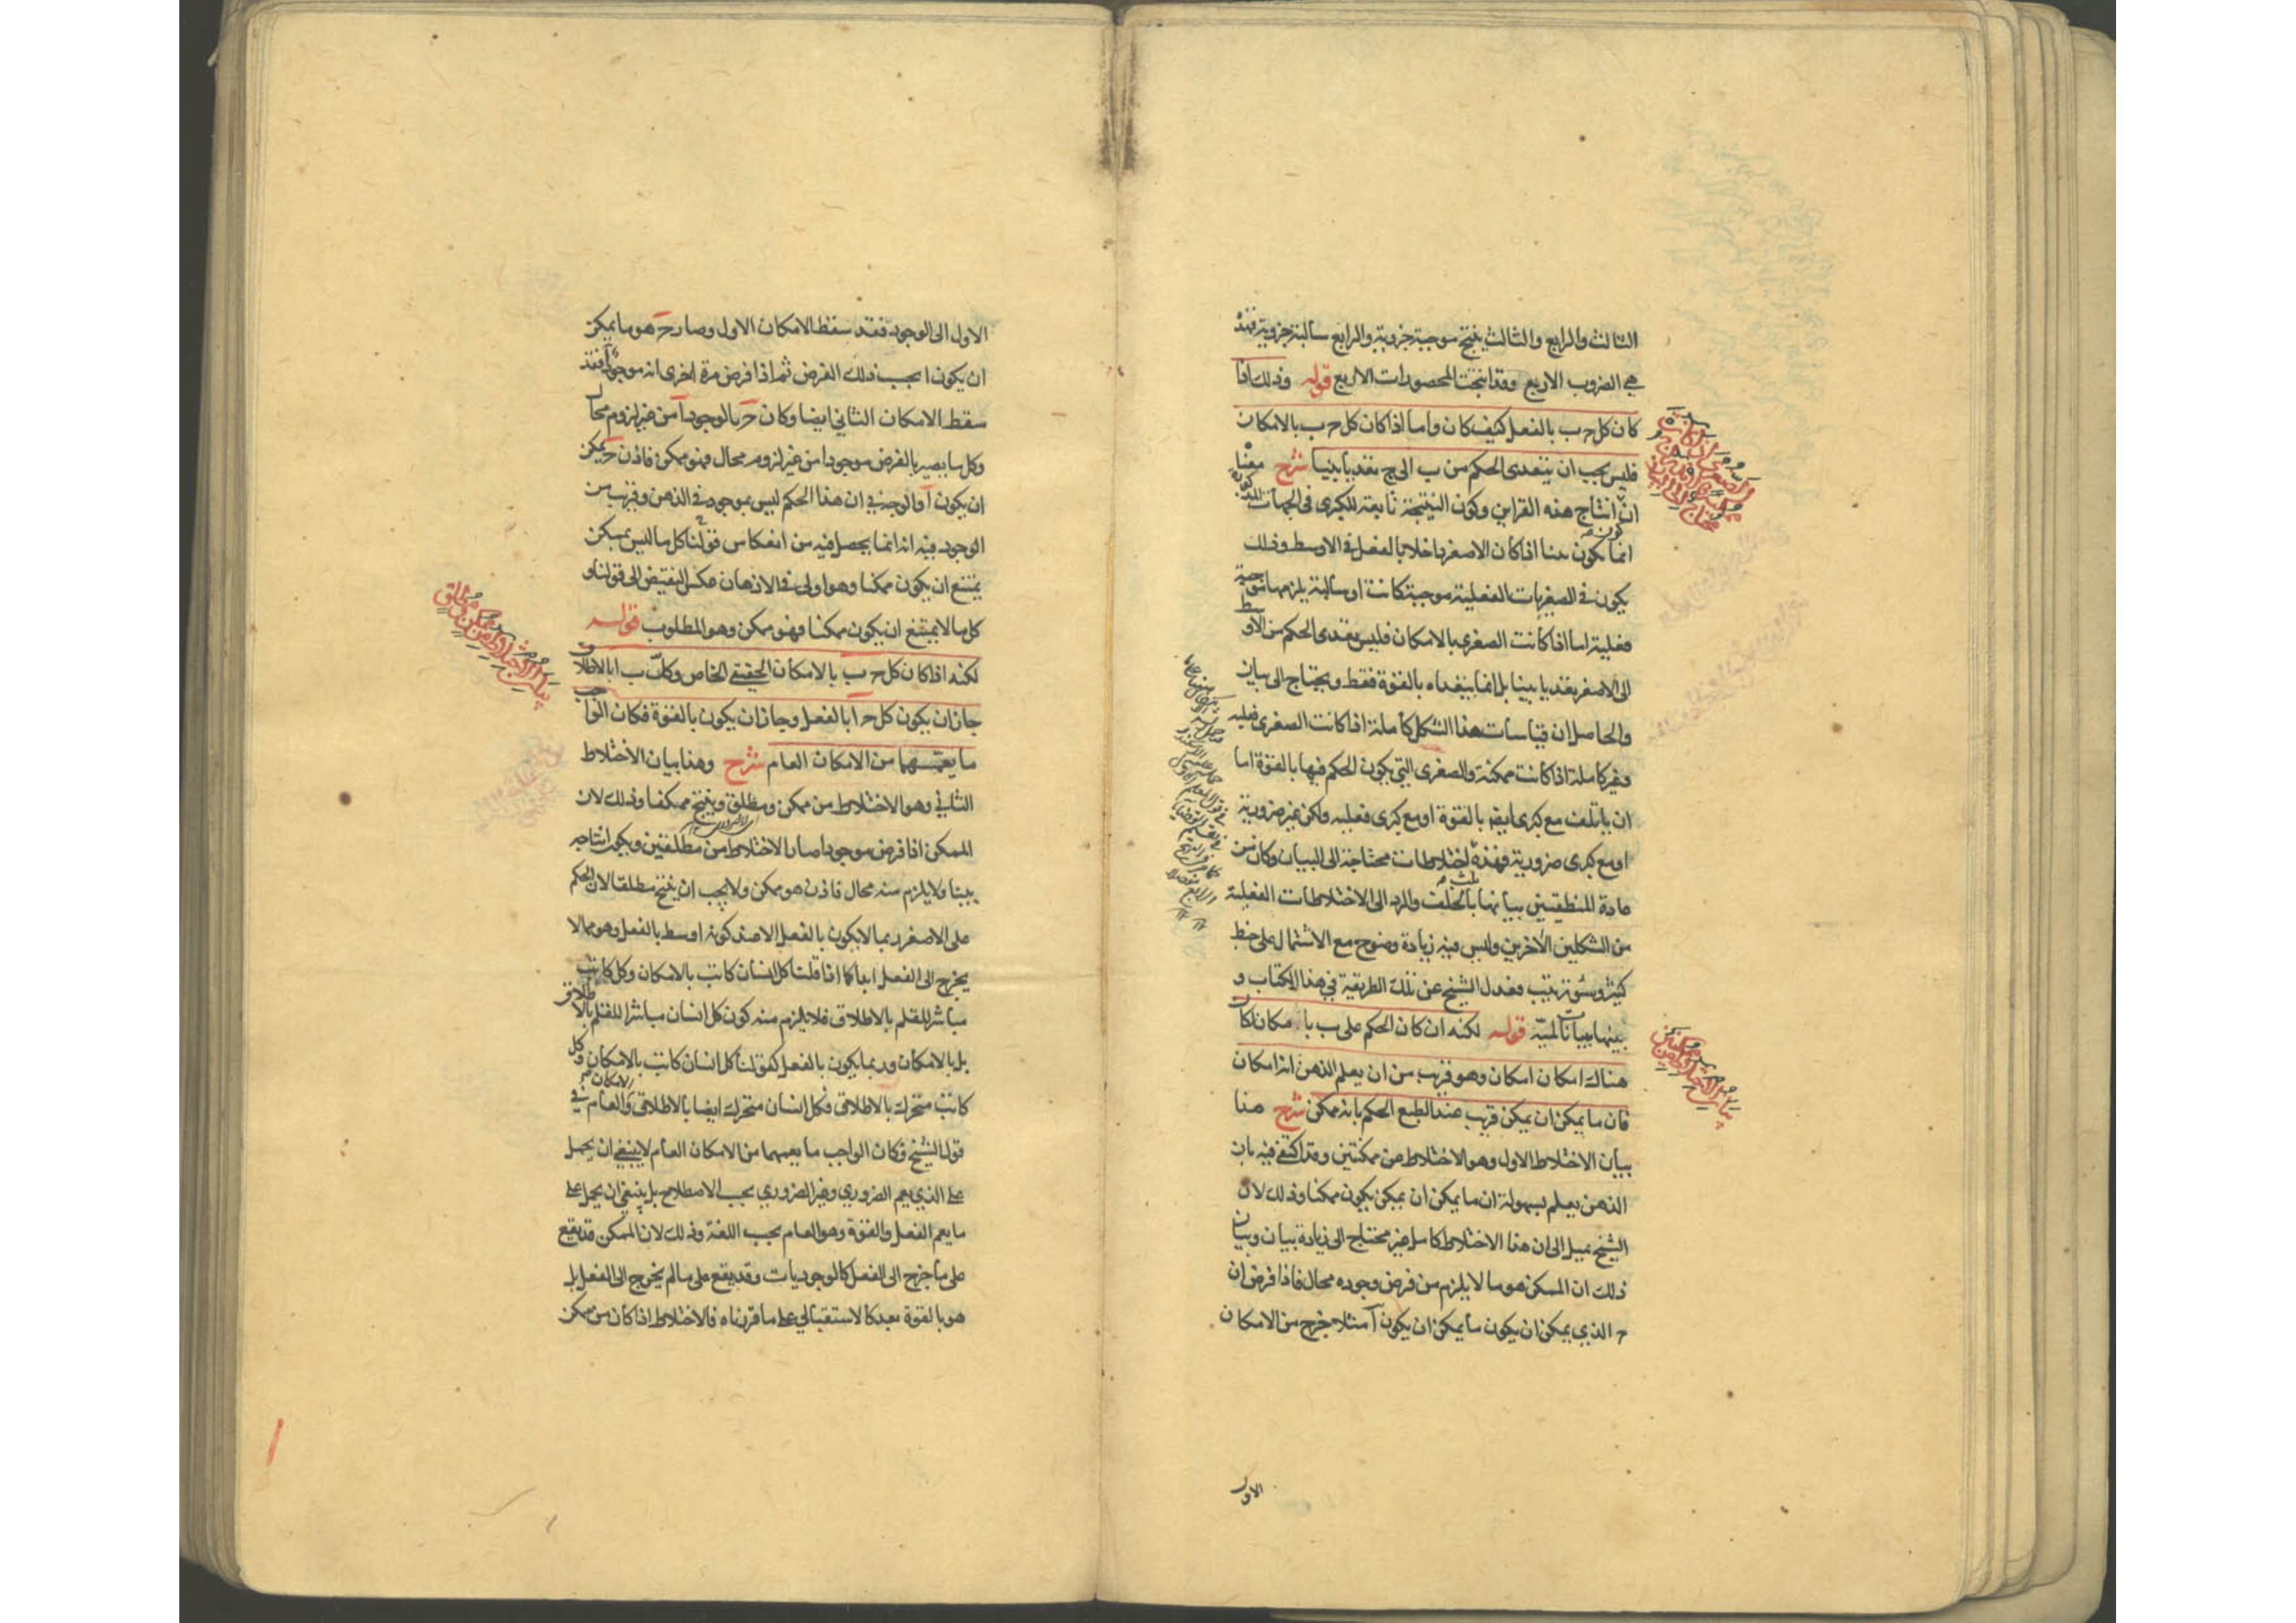 الثالث والرابع والثالث ينتج موجبة جزوية والرابع سالبة جزوية فهذه
هي الضروب الاربع وقد انتجت المحصورات الاربع قوله وذلك اذا
كان كل ح ب بالفعل كيف كان واما اذا كان كل ح ب بالامكان
فليس يجب ان يتعدى الحكم من ب الى ج تعديا بينا شرح معناه
ان انتاج هذه القراين وكون النتيجة تابعة للكبرى في الجهات المذكورة
انما يكون بينا اذا كان الاصغر داخلا بالفعل في الاوسط وذلك
يكون في الصغريات الفعلية موجبة كانت او سالبة يلزمها موجبة
فعلية اما اذا كانت الصغرى بالامكان فليس يتعدى الحكم من الاوسط
الى الاصغر تعديا بينا بل انما يتعداه بالقوة فقط ويحتاج الى بيان
والحاصل ان قياسات هذا الشكل كاملة اذا كانت الصغرى فعليه
وغير كاملة اذا كانت ممكنة والصغرى التي يكون الحكم فيها بالقوة اما
ان ياتلف مع كبرى ايضا بالقوة او مع كبرى فعليه ولكن غير ضرورية
او مع كبرى ضرورية فهذه ثلث اختلاطات محتاجة الى البيان وكان من
عادة المنطقيين بيانها بالخلف والرد الى الاختلاطات الفعلية
من الشكلين الاخرين وليس فيه زيادة وضوح مع الاشتمال على خبط
كثير وسوء ترتيب فعدل الشيخ عن تلك الطريقة في هذا الكتاب و
بينها ببيانات لمية قوله لكنه ان كان الحكم على ب بالامكان كان
هناك امكان امكان وهو قريب من ان يعلم الذهن انه امكان
فان ما يمكن ان يمكن قريب عند الطبع الحكم بانه ممكن شرح هذا
بيان الاختلاط الاول وهو الاختلاط من ممكنتين وقد اكتفى فيه بان
الذهن يعلم بسهولة ان ما يمكن ان يمكن يكون ممكنا وذلك لان
الشيخ يميل الى ان هذا الاختلاط كامل غير محتاج الى زيادة بيان وبيان
ذلك ان الممكن هو ما لا يلزم من فرض وجوده محال فاذا فرض ان
ح الذي يمكن ان يكون ما يمكن ان يكون آ مثلا خرج من الامكان
الاول
بيان الاختلاط من ممكنتين
الاول الى الوجود فقد سقط الامكان الاول وصار ح هو ما يمكن
ان يكون ا بحسب ذلك الفرض ثم اذا فرض مرة اخرى انه موجود آ فقد
سقط الامكان الثاني ايضا وكان ح بالوجود آ من غير لزوم محال
وكل ما يصير بالفرض موجودا من غير لزوم محال فهو ممكن فاذن ح يمكن
ان يكون آ والوجه في ان هذا الحكم ليس بموجود في الذهن وقريب من
الوجود فيه انه انما يحصل فيه من انعكاس قولنا كل ما ليس بممكن
يمتنع ان يكون ممكنا وهو اولى في الاذهان عكس النقيض الى قولنا و
كل ما لا يمتنع ان يكون ممكنا فهو ممكن وهو المطلوب قوله
لكنه اذا كان كل ح ب بالامكان الحقيقي الخاص وكل ب ا بالاطلاق
جاز ان يكون كل ح آ بالفعل وجاز ان يكون بالقوة فكان الواجب
ما يعمهما من الامكان العام شرح وهذا بيان الاختلاط
الثاني وهو الاختلاط من ممكن ومطلق وينتج ممكنا وذلك لان
الممكن اذا فرض موجودا صار الاختلاط من مطلقين ويكون انتاجه
بينا ولا يلزم منه محال فاذن هو ممكن ولا يجب ان ينتج مطلقا لان الحكم
على الاصغر ربما لا يكون بالفعل الا عند كونه اوسط بالفعل وهو مما لا
يخرج الى الفعل ابدا كما اذا قلنا كل انسان كاتب بالامكان وكل كاتب
مباشر للقلم بالاطلاق فلا يلزم منه كون كل انسان مباشرا للقلم بالاطلاق
بل بالامكان وربما يكون بالفعل كقولنا كل انسان كاتب بالامكان وكل
كاتب متحرك بالاطلاق فكل انسان متحرك ايضا بالاطلاق والامكان العام في
قول الشيخ فكان الواجب ما يعمهما من الامكان العام لا ينبغي ان يحمل
على الذي يعم الضروري وغير الضروري بحسب الاصطلاح بل ينبغي ان يحمل على
ما يعم الفعل والقوة وهو العام بحسب اللغة وذلك لان الممكن قد يقع
على ما خرج الى الفعل كالوجوديات وقد يقع على ما لم يخرج الى الفعل بل
هو بالقوة بعد كالاستقبالي على ما قررناه فالاختلاط اذا كان من ممكن
بيان الاختلاط من ممكن ومطلق